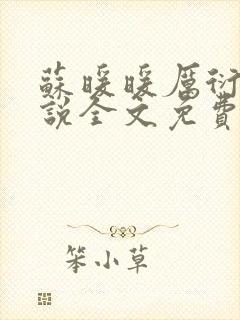 蘇暖暖厲衍
說全文免費
笨小草